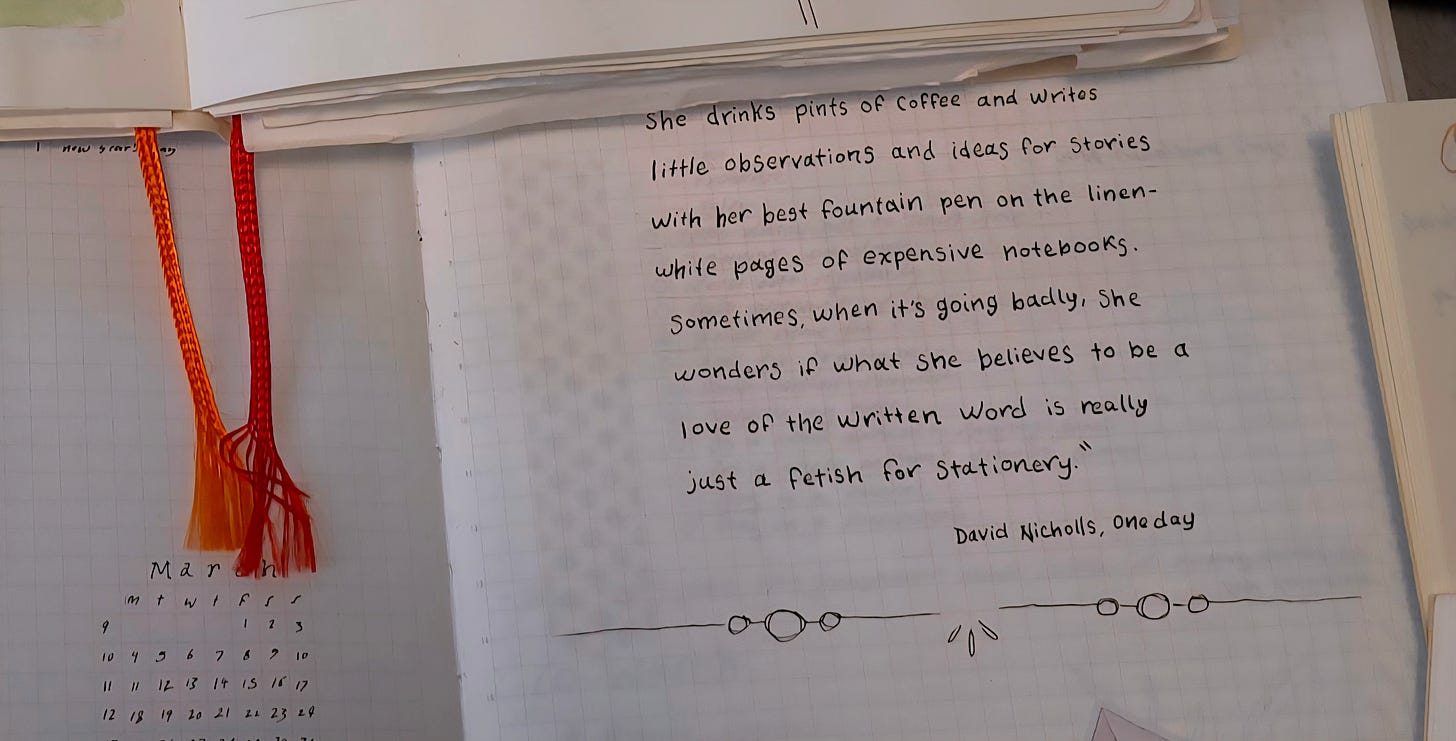 1 new years day
March
m t w t f s s
9 1 2 3
10 4 5 6 7 8 9 10
11 11 12 13 14 15 16 17
12 18 19 20 21 22 23 24
She drinks pints of coffee and writes
little observations and ideas for stories
with her best fountain pen on the linen-
white pages of expensive notebooks.
Sometimes, when it's going badly, she
wonders if what she believes to be a
love of the written word is really
just a fetish for stationery."
David Nicholls, One day